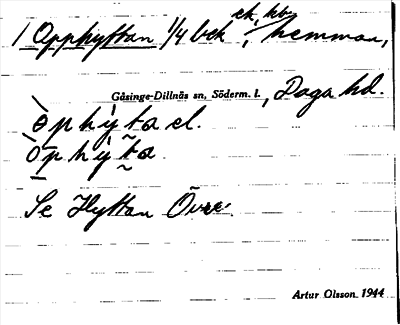 1 Opphyttan 1/4 bck ek, kb, hemman,
Gåsinge-Dillnäs sn, Söderm. l., Daga hd.
òp h ý t a el.
òp h ý t a
Se Hyttan Övre.
Artur Olsson 1944